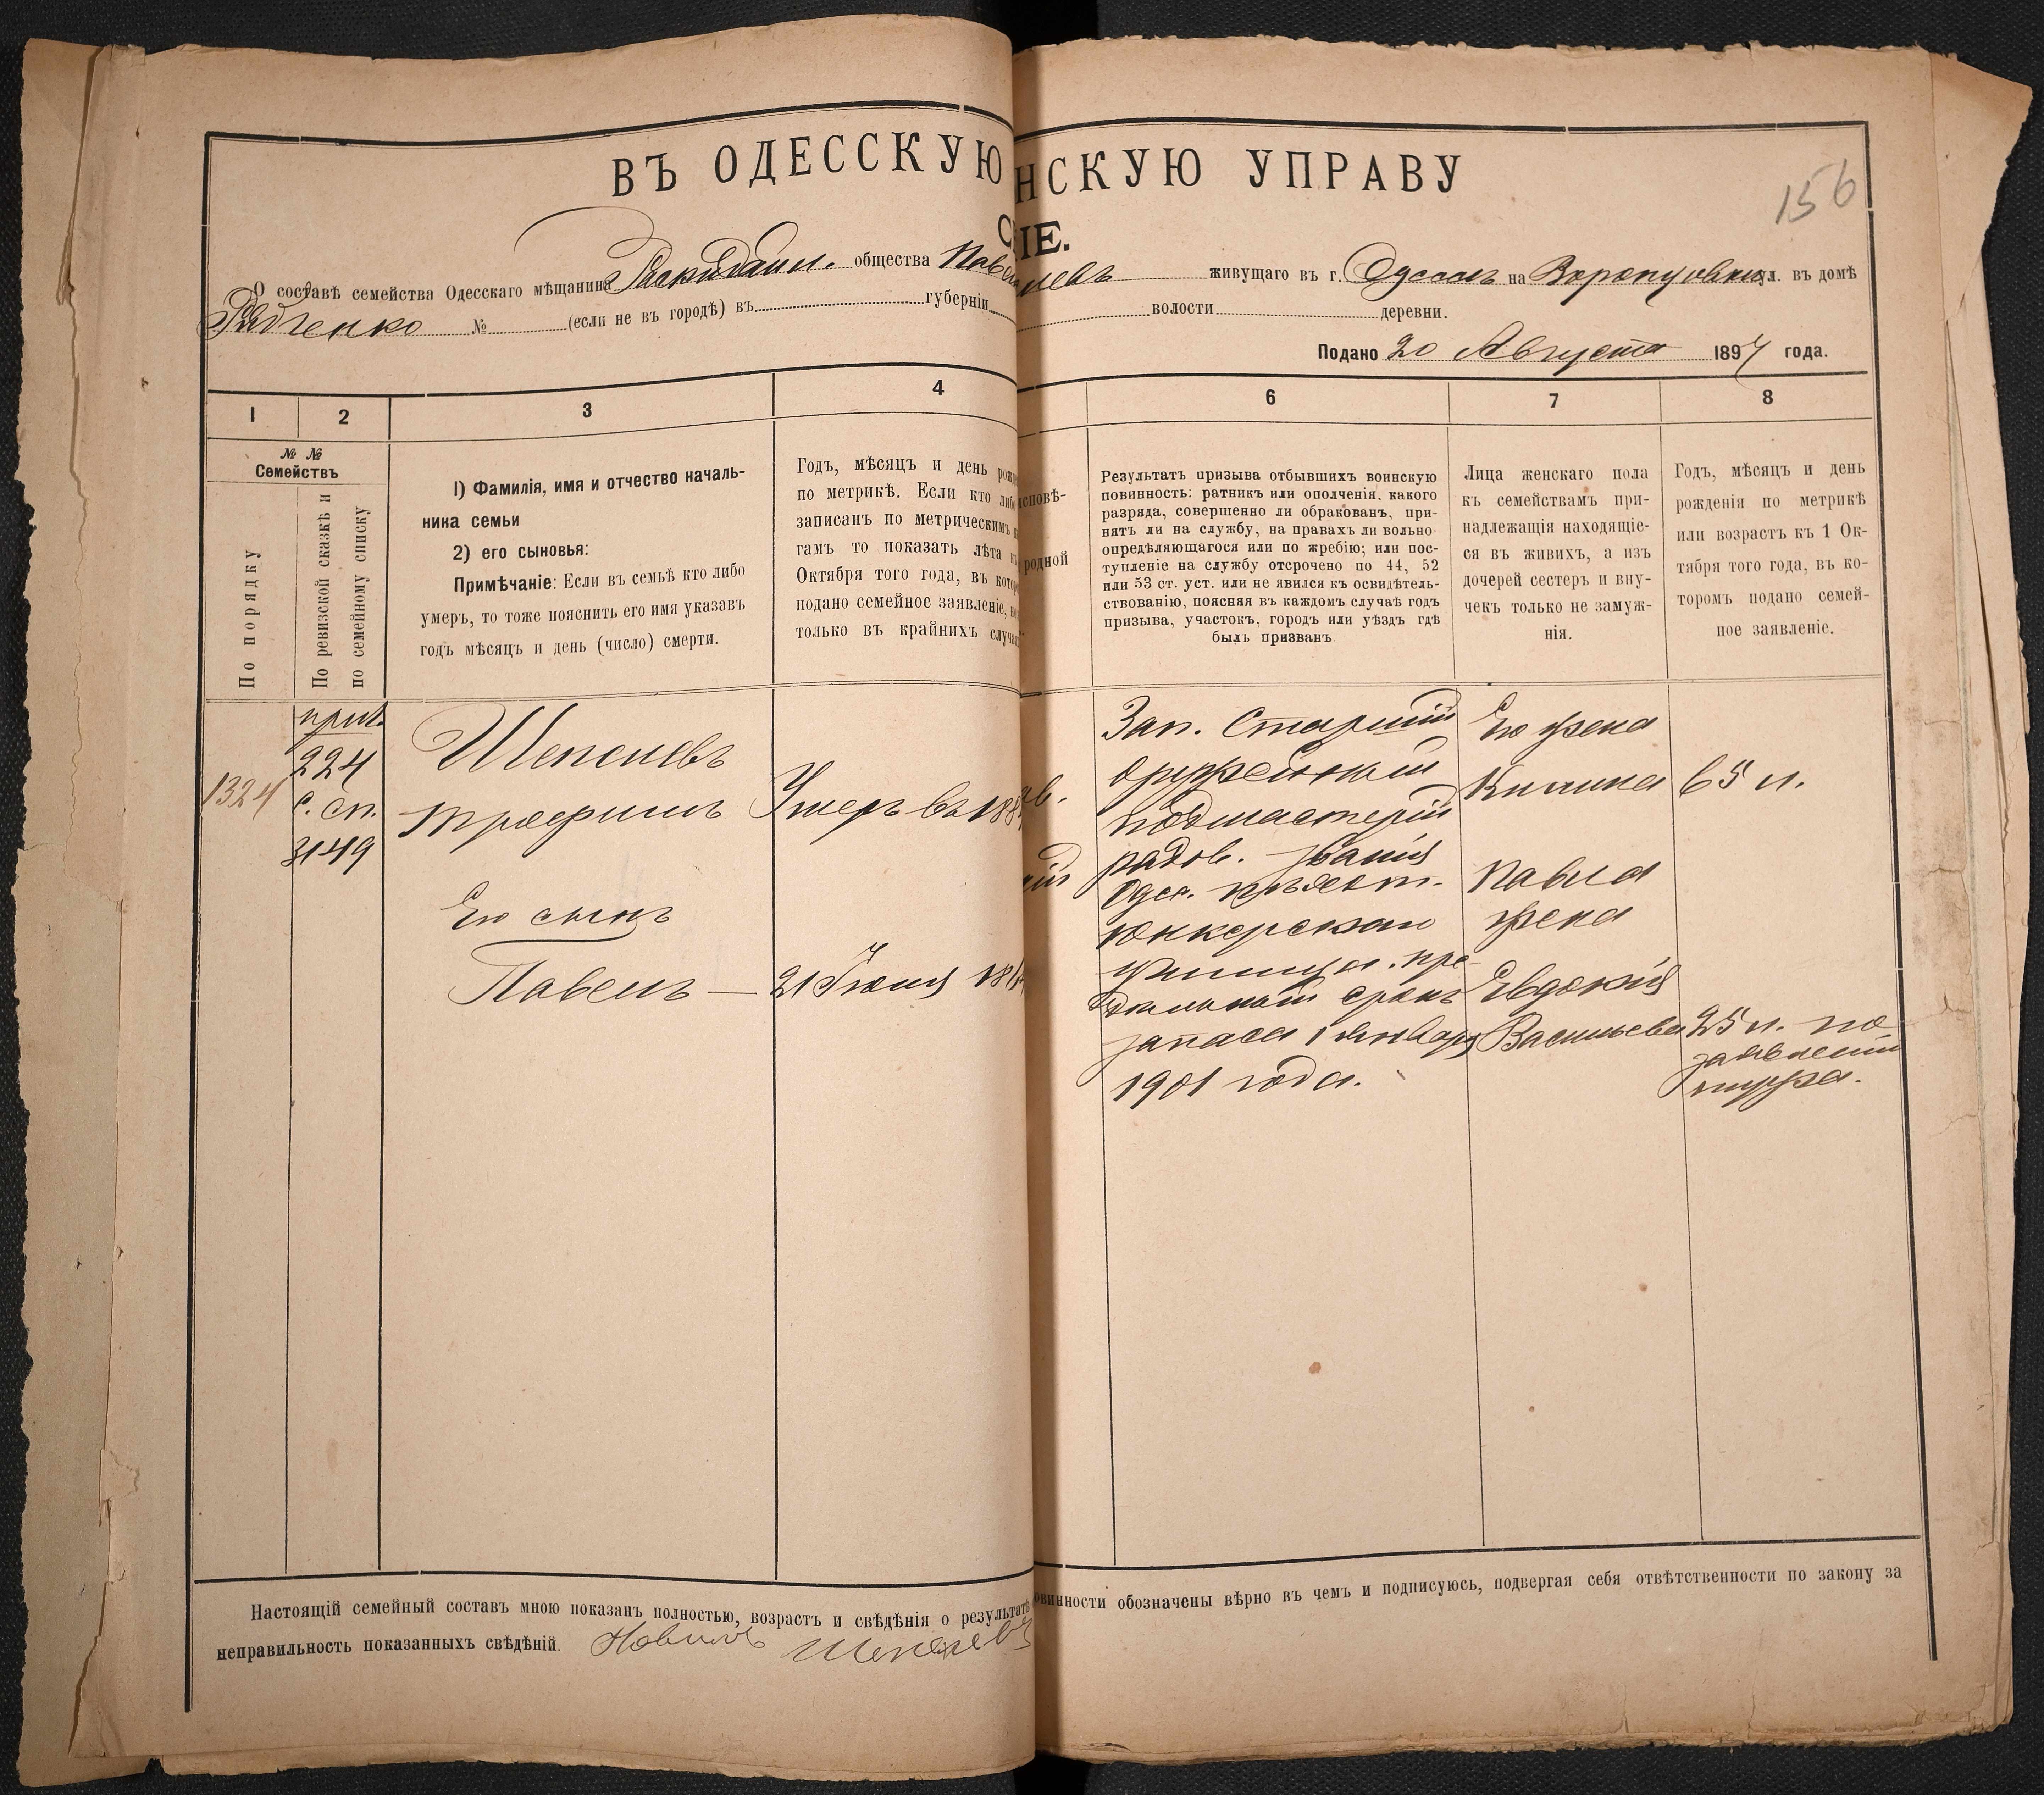 ВЪ ОДЕССКУЮ НСКУЮ УПРАВУ
156
ІЕ.
О составѣ семейства Одесскаго мѣщанина общества живущаго въ г. Одессѣ на ул. въ домѣ
Радченко № (если не въ городѣ) въ губерніи волости деревни.
Подано 20 Августа 1897 года.
1 2 3 4 6 7 8
№ №
Семействъ
По порядку
По ревизской сказкѣ и
по семейному списку
1) Фамилія, имя и отчество началь-
ника семьи
2) его сыновья:
Примѣчаніе: Если въ семьѣ кто либо
умеръ, то тоже пояснить его имя указавъ
годъ мѣсяцъ и день (число) смерти.
Годъ, мѣсяцъ и день рож
по метрикѣ. Если кто либо
записанъ по метрическимъ
гамъ то показать лѣта къ
Октября того года, въ кото
подано семейное заявленіе, но
только въ крайнихъ случа
исповѣ-
родной
Результатъ призыва отбывшихъ воинскую
повинность: ратникъ или ополченія, какого
разряда, совершенно ли обракованъ, при-
нятъ ли на службу, на правахъ ли вольно-
опредѣляющагося или по жребію; или пос-
тупленіе на службу отсрочено по 44, 52
или 53 ст. уст. или не явился къ освидѣтель-
ствованію, поясняя въ каждомъ случаѣ годъ
призыва, участокъ, городъ или уѣздъ гдѣ
былъ призванъ
Лица женскаго пола
къ семействамъ при-
надлежащія находящіе-
ся въ живихъ, а изъ
дочерей сестеръ и вну-
чекъ только не замуж-
нія.
Годъ, мѣсяцъ и день
рожденія по метрикѣ
или возрастъ къ 1 Ок-
тября того года, въ ко-
торомъ подано семей-
ное заявленіе.
1324
224
с. сп.
3149
Шепелевъ
Трофимъ
Умеръ въ 188
Его сынъ
Павелъ — 21 Іюня 18
Зап. Старшій
оружейный
подмастерій
рядов. званія
Одес. пѣхот.
юнкерскаго
училища. пре-
дѣльный срокъ
запаса 1 Января
1901 года.
Его жена
65 л.
Павла
жена
Евдокія
Васильева
25 л. по
заявленію
мужа.
Настоящій семейный составъ мною показанъ полностью, возрастъ и свѣдѣнія о результатѣ овинности обозначены вѣрно въ чемъ и подписуюсь, подвергая себя отвѣтственности по закону за
неправильность показанныхъ свѣдѣній. Шепелевъ